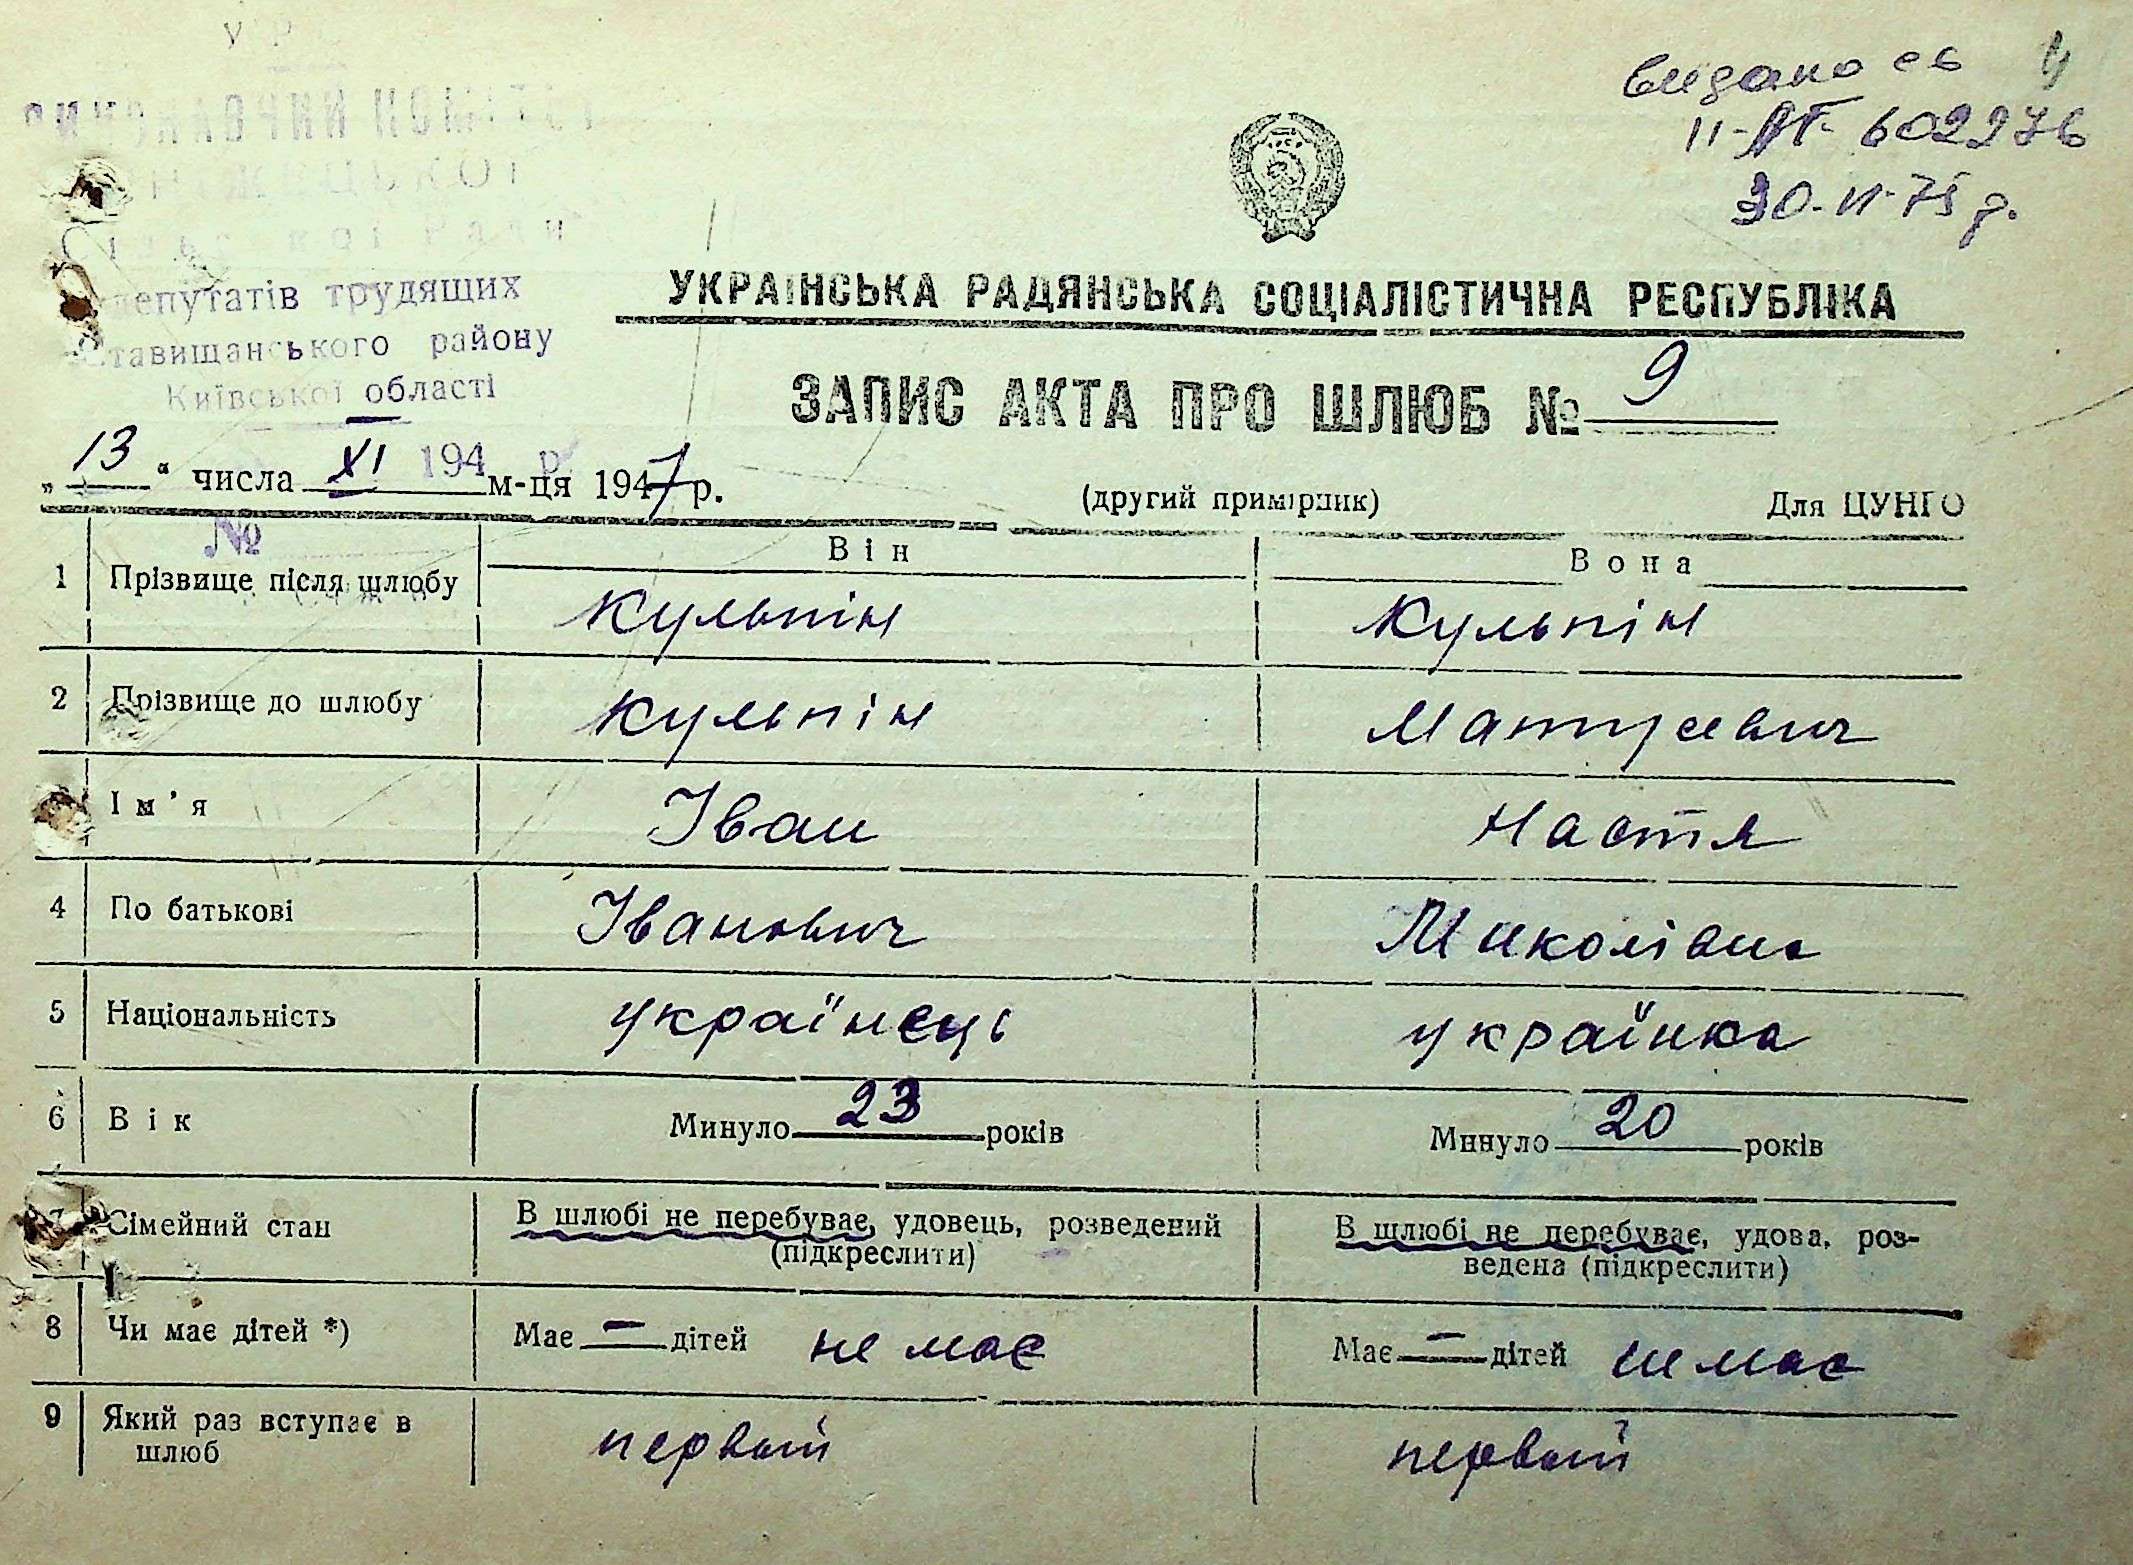 УР
ВИКОНАВЧИЙ КОМІТЕТ
депутатів трудящих
Ставищанського району
Київської області
194 р.
№
видано св
ІІ-АГ- 602276
30-VI-75 р.
УКРАЇНСЬКА РАДЯНСЬКА СОЦІАЛІСТИЧНА РЕСПУБЛІКА
ЗАПИС АКТА ПРО ШЛЮБ № 9
„13“ числа XI м-ця 1947 р.
(другий примірник) Для ЦУНГО
Він Вона
1 Прізвище після шлюбу Кульпін Кульпін
2 Прізвище до шлюбу Кульпін Матусевич
Ім'я Іван Настя
4 По батькові Іванович Миколівна
5 Національність українець українка
6 Вік Минуло 23 років Минуло 20 років
7 Сімейний стан В шлюбі не перебуває, удовець, розведений (підкреслити) В шлюбі не перебуває, удова, роз-
ведена (підкреслити)
8 Чи має дітей *) Має — дітей не має Має — дітей не має
9 Який раз вступає в
шлюб первый первый